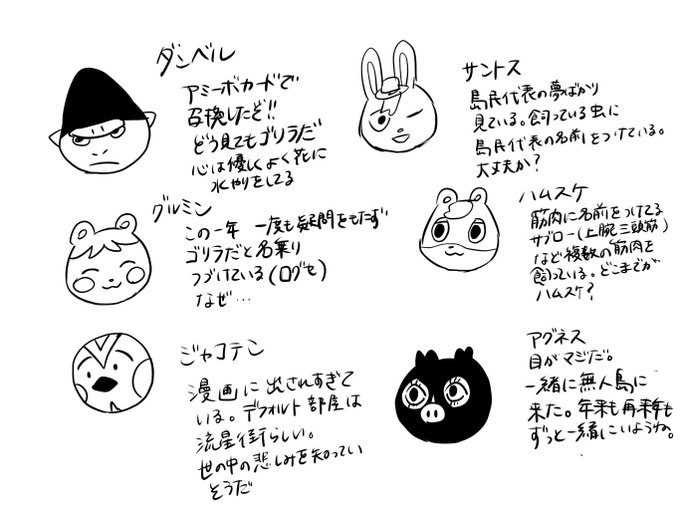 ダンベル
アミーボカードで
召喚したど!!
どう見てもゴリラだ
心は優しくよく花に
水やりをしてる
サントス
島民代表の夢ばかり
見ている。飼っている虫に
島民代表の名前をつけている。
大丈夫か?
グルミン
この一年 一度も疑問をもたず
ゴリラだと名乗り
つづけている(口グセ)
なぜ…
ハムスケ
筋肉に名前をつけてる
サブロー(上腕三頭筋)
など複数の筋肉を
飼っている。どこまでが
ハムスケ?
ジャコテン
漫画に出されすぎて
いる。デフォルト部屋は
流星街らしい。
世の中の悲しみを知ってい
そうだ
アグネス
目がマジだ。
一緒に無人島に
来た。年末も再来年も
ずっと一緒にいようね。